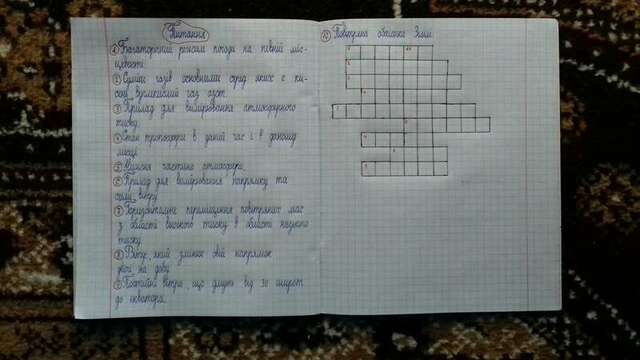 Питання
① Багаторічний режим погоди на певній міс-
цевості.
② Суміш газів основними серед яких є ки-
сень, вуглекислий газ, азот.
③ Прилад для вимірювання атмосферного
тиску
④ Стан тропосфери в даний час і в даному
місці
⑤ Нижня частина атмосфери
⑥ Прилад для вимірювання напрямку та
сили вітру
⑦ Горизонтальне переміщення повітряних мас
з області високого тиску в області низького
тиску
⑧ Вітер, який змінює свій напрямок
двічі на добу
⑨ Постійні вітри, що дмуть від 30 широт
до екватора.
Повітряна оболонка Землі